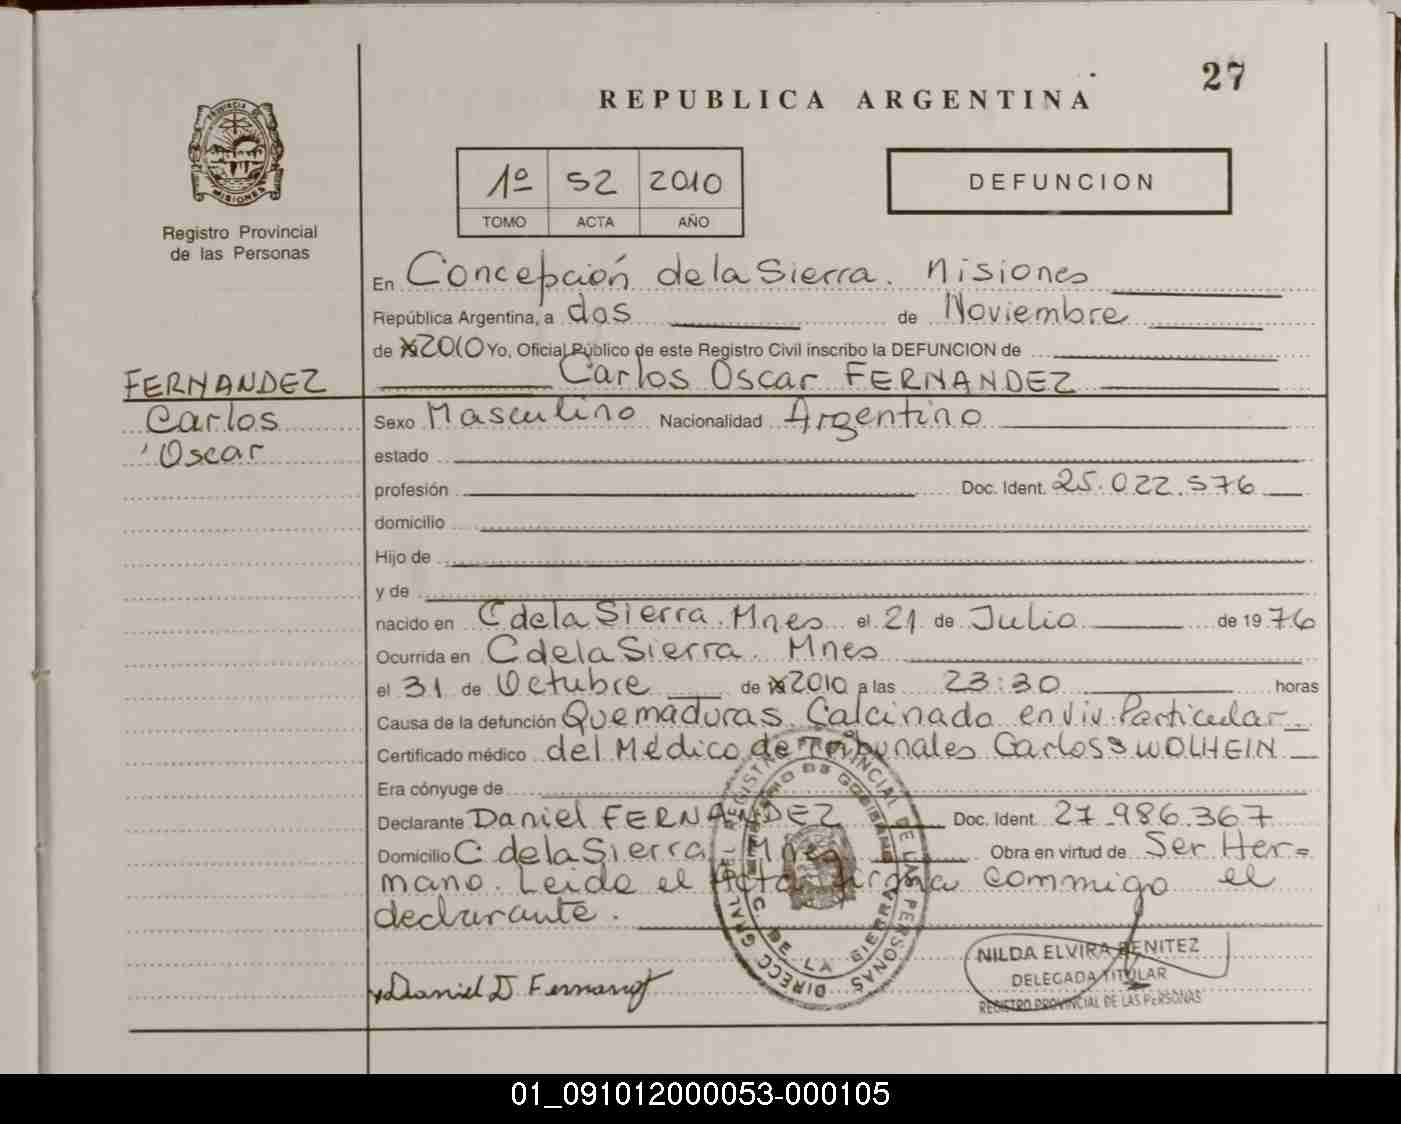 27
REPUBLICA ARGENTINA
1º 52 2010
TOMO ACTA AÑO
DEFUNCION
PROVINCIA DE MISIONES
Registro Provincial
de las Personas
En Concepción de la Sierra. Misiones
República Argentina, a dos de Noviembre
de 2010 Yo, Oficial Público de este Registro Civil inscribo la DEFUNCION de
Carlos Oscar FERNANDEZ
FERNANDEZ
Carlos
Oscar
Sexo Masculino Nacionalidad Argentino
estado
profesión Doc. Ident. 25.022.576
domicilio
Hijo de
y de
nacido en C de la Sierra. Mnes el 21 de Julio de 1976
Ocurrida en C de la Sierra. Mnes
el 31 de Octubre de 2010 a las 23:30 horas
Causa de la defunción Quemaduras. Calcinado en viv. Particular
Certificado médico del Médico de Tribunales Carlos WOLHEIN
Era cónyuge de
Declarante Daniel FERNANDEZ Doc. Ident. 27.986.367
Domicilio C de la Sierra Mnes Obra en virtud de Ser Her=
mano. Leida el Acta firma commigo el
declarante.
Daniel D
NILDA ELVIRA BENITEZ
DELEGADA TITULAR
REGISTRO PROVINCIAL DE LAS PERSONAS
DIRECC. GRAL. DEL REGISTRO PROVINCIAL DE LAS PERSONAS
MINISTERIO DE GOBIERNO
C. DE LA SIERRA
01_091012000053-000105